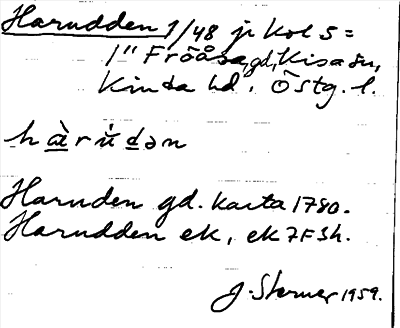 Harudden 1/48 jr kol 5 =
1" Fröåsa, gd, Kisa sn,
Kinda hd. Östg. l.
hàrúdən
Haruden gd. karta 1780.
Harudden ek, ek 7F3h.
J. Sterner 1959.